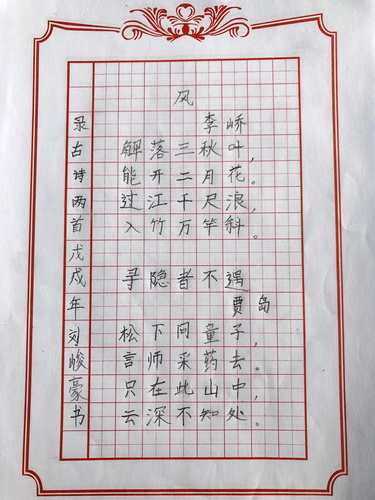 风
李峤
解落三秋叶，
能开二月花。
过江千尺浪，
入竹万竿斜。
寻隐者不遇
贾岛
松下问童子，
言师采药去。
只在此山中，
云深不知处。
录古诗两首戊戌年刘峻豪书